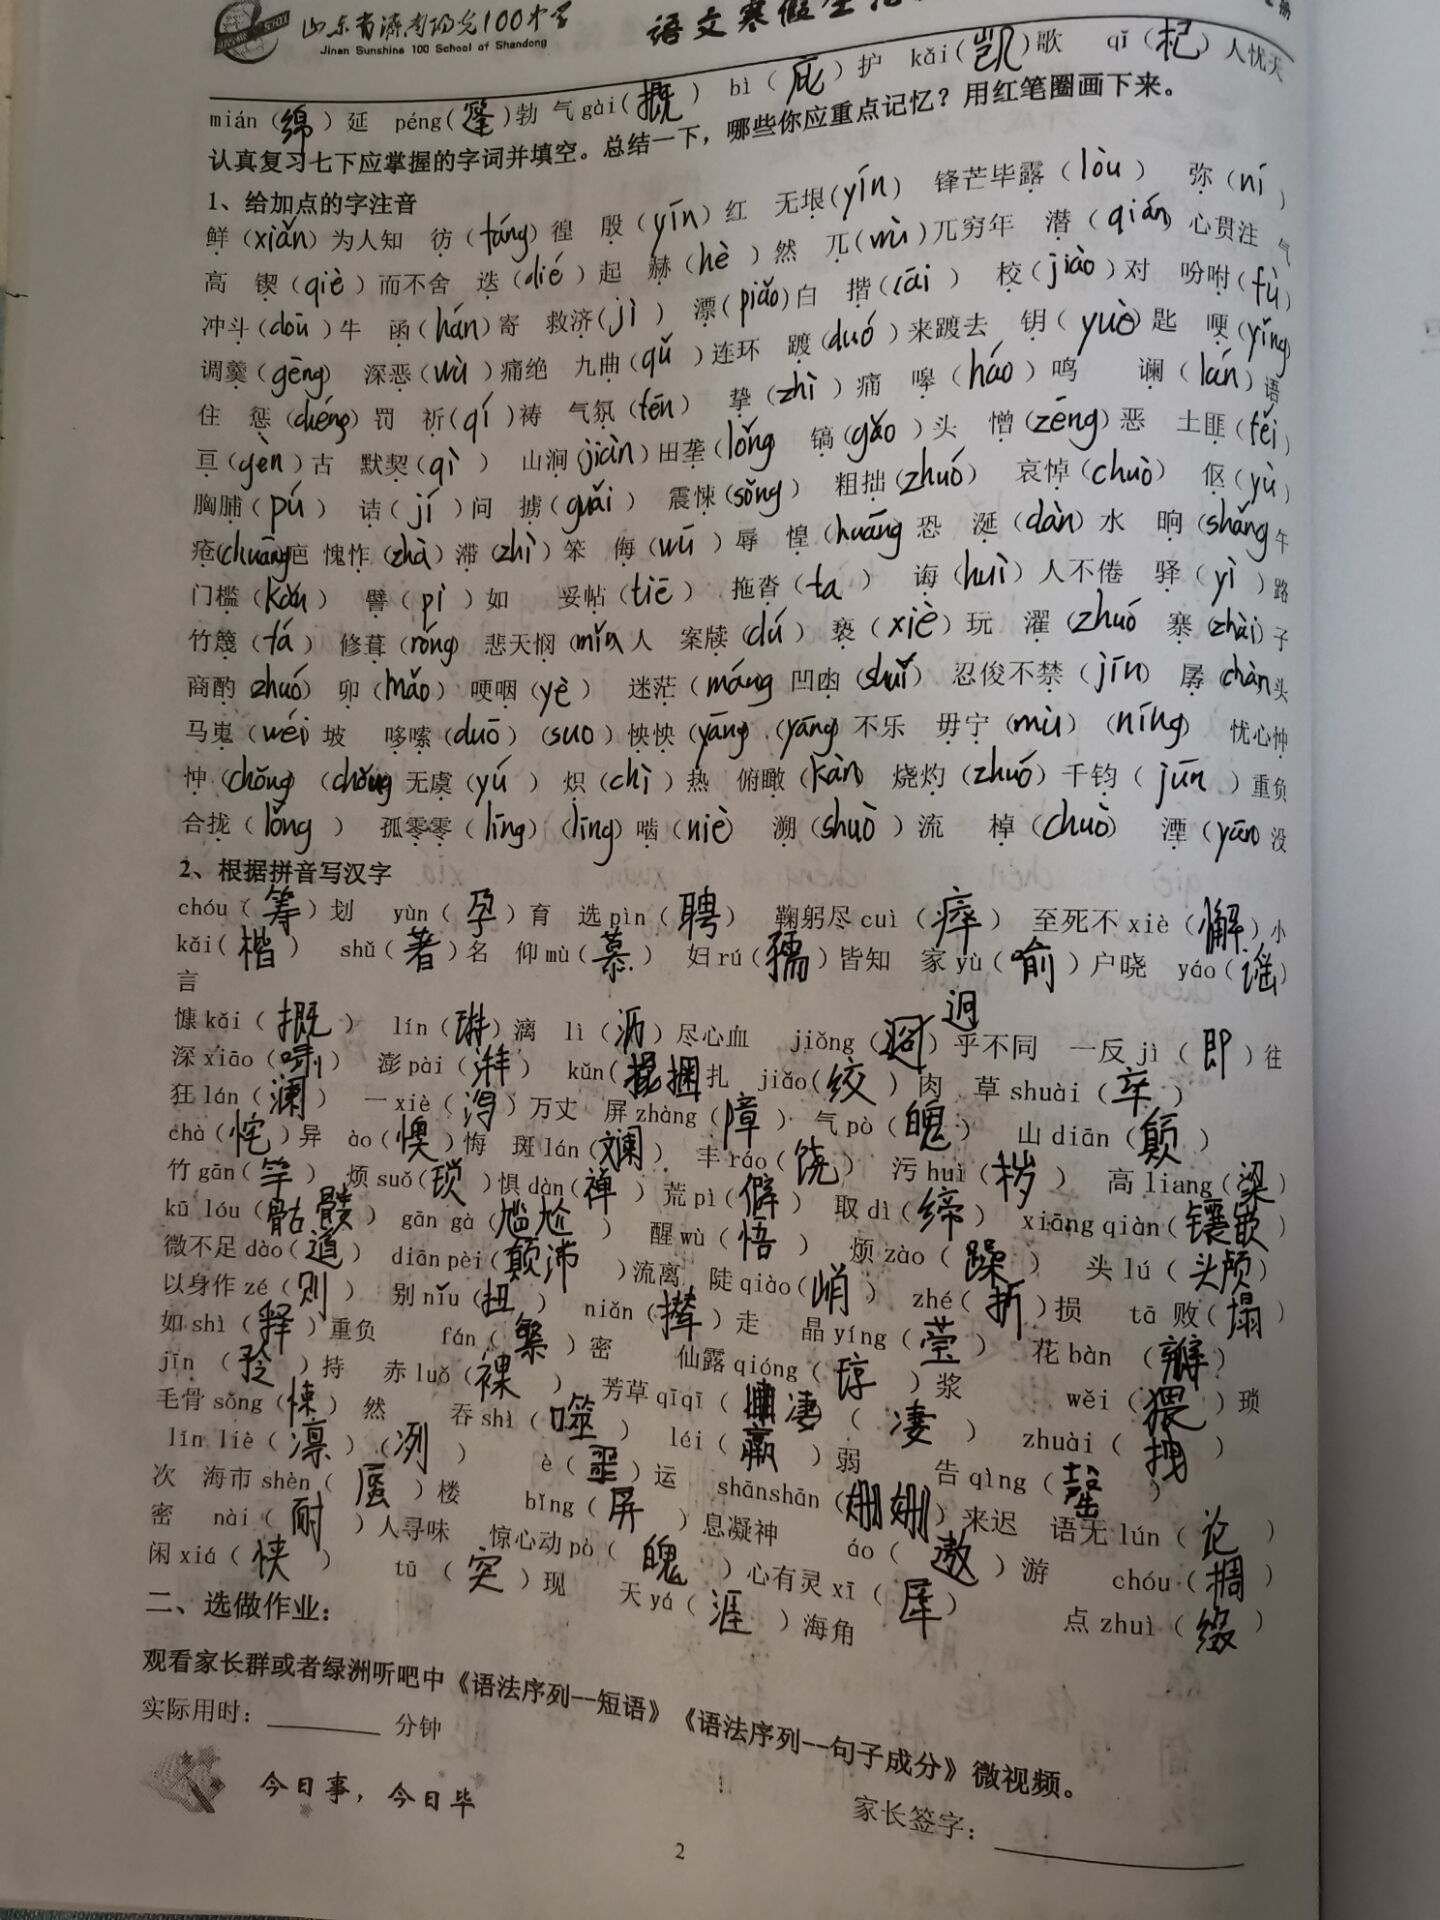 山东省济南阳光100中学
Jinan Sunshine 100 School of Shandong
语文寒假生活
mián（绵）延 péng(篷)勃 气gài(概) bì（庇）护 kǎi(凯)歌 qǐ（杞）人忧天
认真复习七下应掌握的字词并填空。总结一下，哪些你应重点记忆？用红笔圈画下来。
1、给加点的字注音
鲜（xiǎn）为人知 彷（táng）徨 殷（yīn）红 无垠(yín） 锋芒毕露（lòu） 弥（ní）
高 锲（qiè）而不舍 迭（dié）起 赫（hè）然 兀(mù)兀穷年 潜（qián）心贯注 气
冲斗(doū)牛 函(hán)寄 救济(jì) 漂(piǎo)白 揩(cāi) 校(jiào)对 吩咐(fù)
调羹(gēng) 深恶(wù)痛绝 九曲(qǔ)连环 踱(duó)来踱去 钥(yuò)匙 哽(yǐng)
住 惩(chéng)罚 祈(qí)祷 气氛(fēn) 挚(zhì)痛 嗥(háo)鸣 谰(lán)语
亘(gèn)古 默契(qì) 山涧(jiàn)田垄(lǒng) 镐(gǎo)头 憎(zēng)恶 土匪(fěi)
胸脯(pú) 诘(jí)问 掴(guāi) 震悚(sǒng) 粗拙(zhuó) 哀悼(chuò) 伛(yù)
疮(chuāng)疤 愧怍(zhà)滞(zhì)笨 侮(wū)辱 惶(huāng)恐 涎(dàn)水 晌(shǎng)午
门槛(kǎn) 譬(pì)如 妥帖(tiē) 拖沓(ta) 诲(huì)人不倦 驿(yì)路
竹篾(tá) 修葺(róng) 悲天悯(mǐn)人 案牍(dú) 亵(xiè)玩 濯(zhuó) 寨(zhài)子
商酌(zhuó) 卯(mǎo) 哽咽(yè) 迷茫(máng) 凹凼(shuǐ) 忍俊不禁(jīn) 孱(chàn)头
马嵬(wéi)坡 哆嗦(duō)(suo)怏怏(yāng)(yāng)不乐 毋宁(mù)(níng) 忧心忡
忡(chōng)(chǒng)无虞(yú) 炽(chì)热 俯瞰(kàn) 烧灼(zhuó)千钧(jūn)重负
合拢(lǒng) 孤零零(līng)(līng)啮(niè) 溯(shuò)流 棹(chuò) 湮(yān)没
2、根据拼音写汉字
chóu（筹）划 yùn（孕）育 选pìn（聘） 鞠躬尽cuì（瘁） 至死不xiè（懈）小
kǎi(楷) shǔ（著）名 仰mù（慕） 妇rú（孺）皆知 家yù（俞）户晓 yáo（谣）
言
慷kǎi（概） lín（琳）漓 lì（沥）尽心血 迥 jiǒng（）乎不同 一反jì（即）往
深xiāo（） 澎pài（湃） kǔn（捆）扎 jiǎo（绞）肉 草shuài（率）
狂lán（澜） 一xiè（泻）万丈 屏zhàng（障） 气pò（魄） 山diān（颠）
chà（侘）异 ào（懊）悔 斑lán（斓） 丰ráo（饶） 污huì（秽） 高liang（梁）
竹gān（竿） 烦suǒ(琐）惧dàn（禅）荒pì（僻） 取dì（缔） xiāng qiàn（镶嵌）
kū lóu（骷髅） gān gà（尴尬） 醒wù（悟） 烦zào（躁） 头lú（头颅）
微不足dào（道） diān pèi（颠沛）流离 陡qiào（峭） zhé（折）损 tā败（塌）
以身作zé（则） 别niǔ（扭） niǎn（撵）走 晶yíng（莹） 花bàn（瓣）
如shì（释）重负 fán（繁）密 仙露qióng（琼）浆 wěi（猥）琐
jīn（矜）持 赤luǒ（裸） 芳草qīqī（凄）（凄） zhuài（拽）
毛骨sǒng（悚）然 吞shì（噬） léi（羸）弱 告qìng（罄）
lǐn liè（凛）（冽） è（噩）运 shānshān（姗姗）来迟 语无lún（论）
次 海市shèn（蜃）楼 bǐng（屏）息凝神 áo（遨）游 chóu（稠）
密 nài（耐）人寻味 惊心动pò（魄）心有灵xī（犀） 点zhuì（缘）
闲xiá（侠） tū（突）现 天yá（涯）海角
二、选做作业：
观看家长群或者绿洲听吧中《语法序列--短语》《语法序列--句子成分》微视频。
实际用时：________ 分钟
今日事，今日毕
家长签字：
2